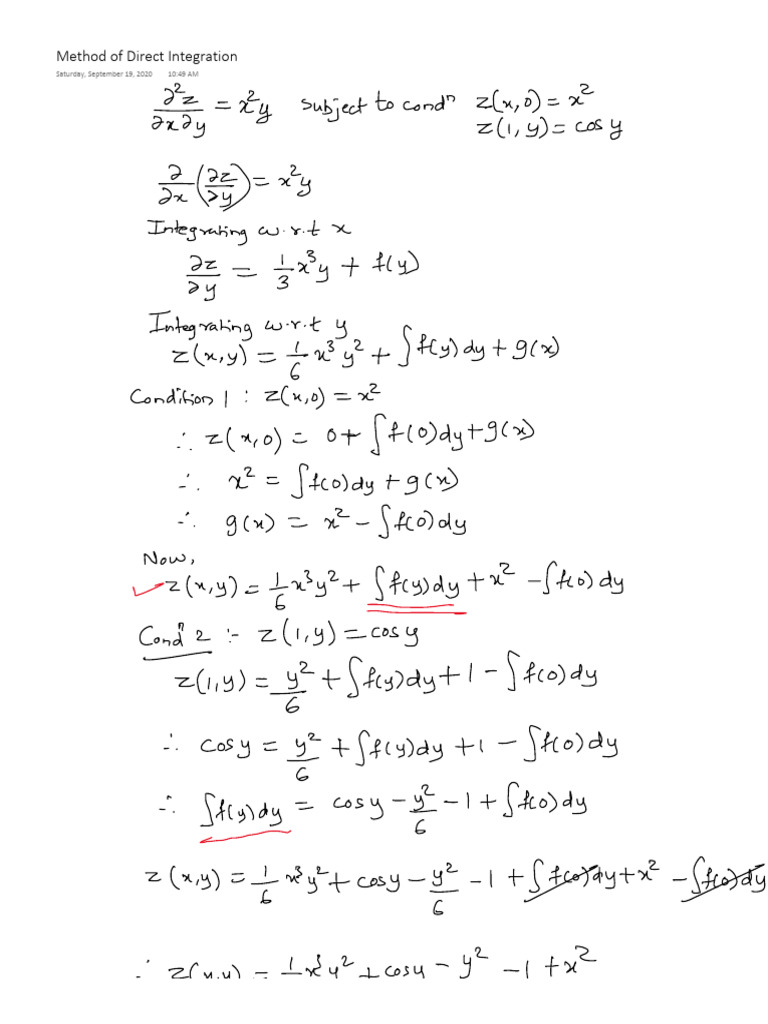 Method of Direct Integration
Saturday, September 19, 2020 10:49 AM
∂²z/∂x∂y = x²y subject to condⁿ z(x,0) = x²
z(1,y) = cos y
∂/∂x (∂z/∂y) = x²y
Integrating w.r.t x
∂z/∂y = 1/3 x³y + f(y)
Integrating w.r.t y
z(x,y) = 1/6 x³y² + ∫f(y)dy + g(x)
Condition 1 : z(x,0) = x²
∴ z(x,0) = 0 + ∫f(0)dy + g(x)
∴ x² = ∫f(0)dy + g(x)
∴ g(x) = x² - ∫f(0)dy
Now,
✓ z(x,y) = 1/6 x³y² + ∫f(y)dy + x² - ∫f(0)dy
Condⁿ 2 :- z(1,y) = cos y
z(1,y) = y²/6 + ∫f(y)dy + 1 - ∫f(0)dy
∴ cos y = y²/6 + ∫f(y)dy + 1 - ∫f(0)dy
∴ ∫f(y)dy = cos y - y²/6 - 1 + ∫f(0)dy
z(x,y) = 1/6 x³y² + cos y - y²/6 - 1 + ∫f(0)dy + x² - ∫f(0)dy
∴ z(x,y) = 1 x³y² + cos y - y² - 1 + x²